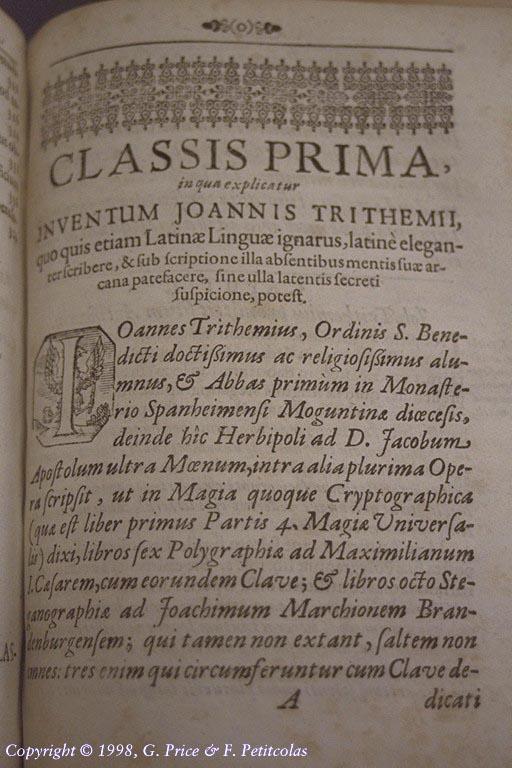 CLASSIS PRIMA,
in qua explicatur
INVENTUM JOANNIS TRITHEMII,
quo quis etiam Latinæ Linguæ ignarus, latinè elegan-
ter scribere, & sub scriptione illa absentibus mentis suæ ar-
cana patefacere, sine ulla latentis secreti
suspicione, potest.
IOannes Trithemius, Ordinis S. Bene-
dicti doctissimus ac religiosissimus alu-
mnus, & Abbas primum in Monaste-
rio Spanheimensi Moguntinæ diœcesis,
deinde hîc Herbipoli ad D. Jacobum
Apostolum ultra Mœnum, intra alia plurima Ope-
ra scripsit, ut in Magia quoque Cryptographica
(quæ est liber primus Partis 4. Magiæ Universa-
lis) dixi, libros sex Polygraphiæ ad Maximilianum
I. Cæsarem, cum eorundem Clave; & libros octo Ste-
ganographiæ ad Joachimum Marchionem Bran-
denburgensem; qui tamen non extant, saltem non
omnes: tres enim qui circumferuntur cum Clave de-
A dicati
Copyright © 1998, G. Price & F. Petitcolas